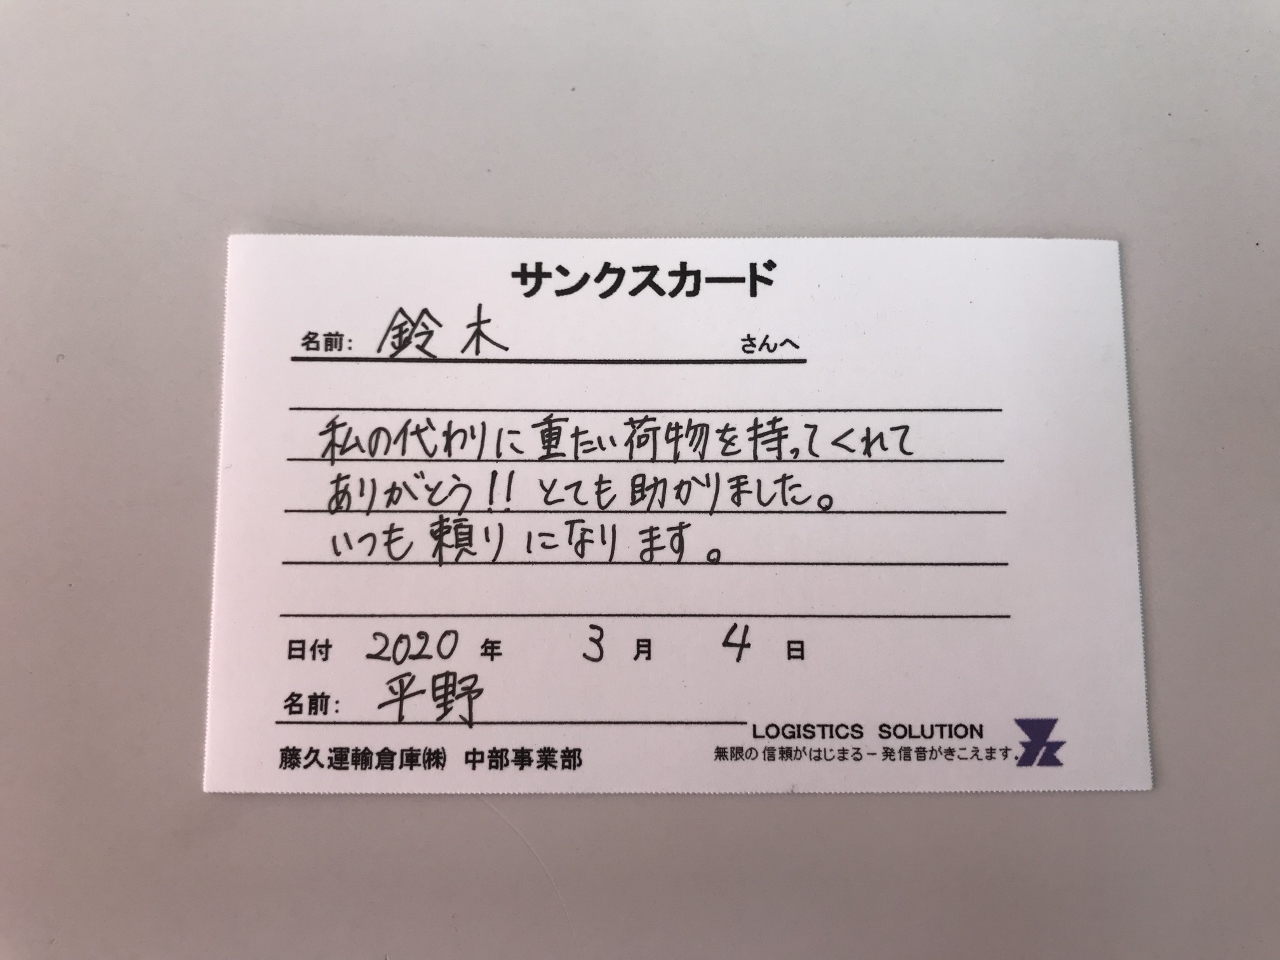 サンクスカード
名前: 鈴木 さんへ
私の代わりに重たい荷物を持ってくれて
ありがとう!! とても助かりました。
いつも頼りになります。
日付 2020 年 3 月 4 日
名前: 平野
LOGISTICS SOLUTION
藤久運輸倉庫㈱ 中部事業部
無限の信頼がはじまる－発信音がきこえます.